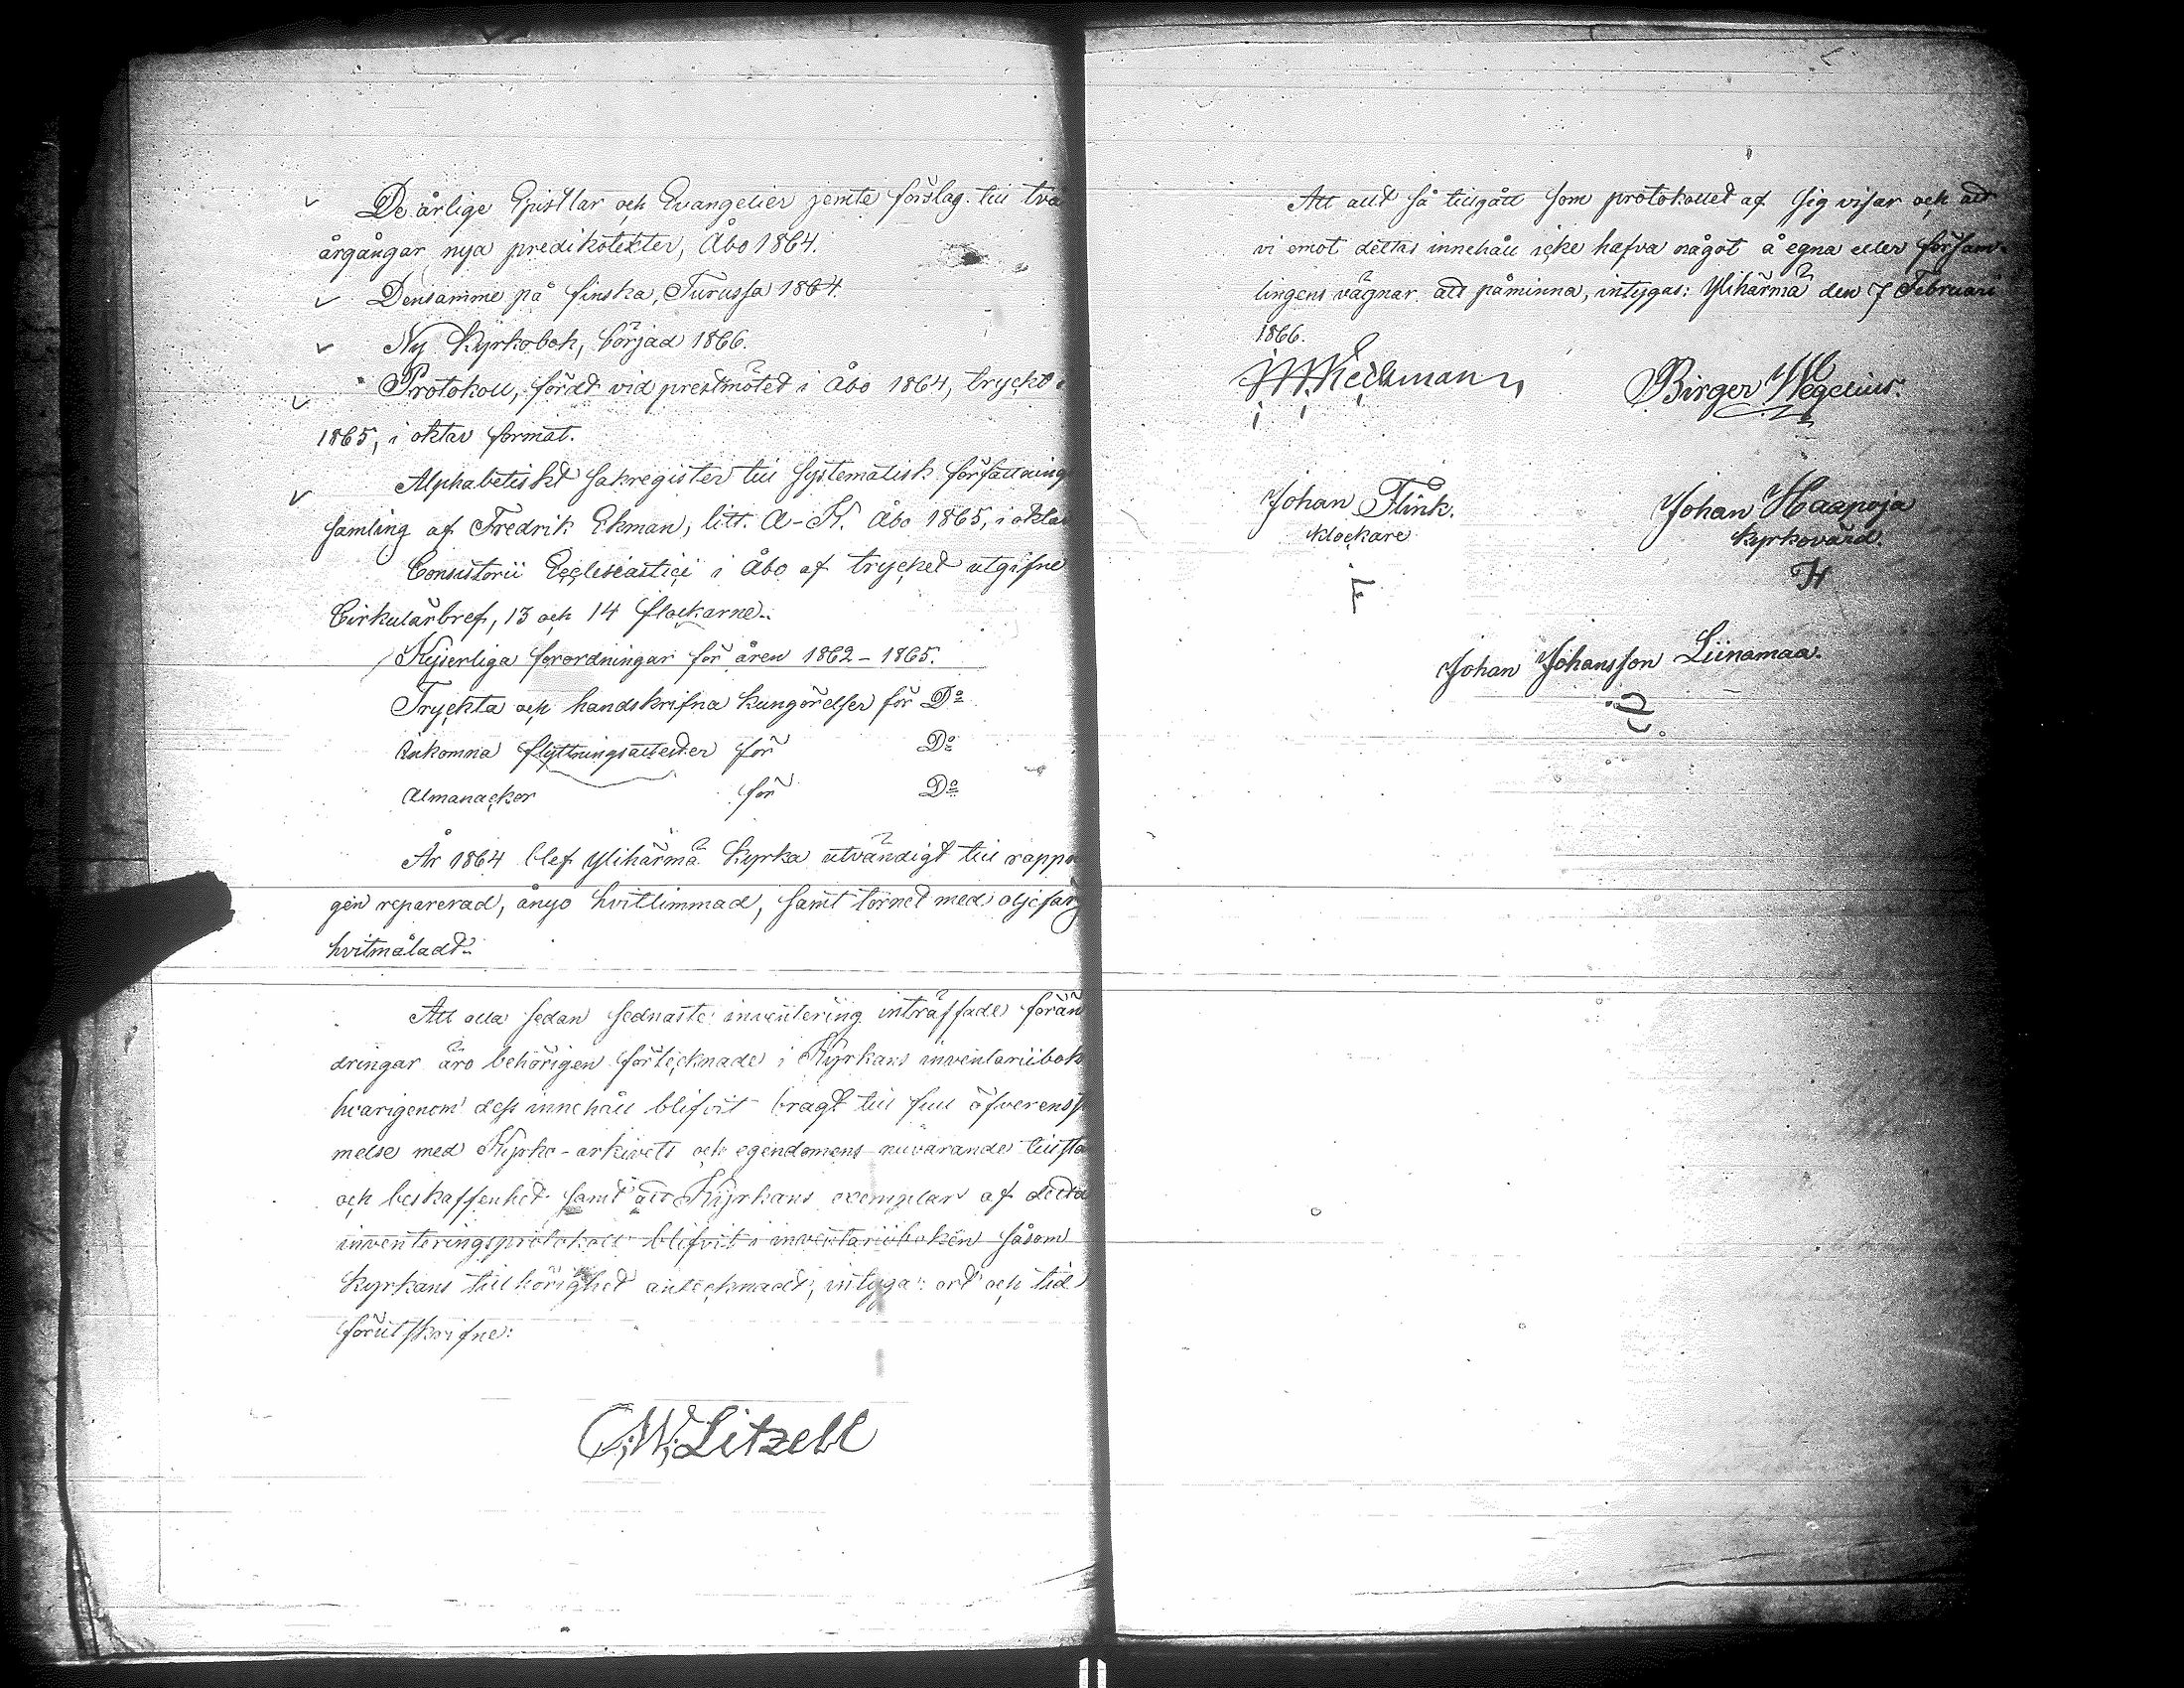 De årlige Epistlar och Evangelier jemte förslag till två
årgångar nya predikotexter, Åbo 1864.
Densamme på finska, Turussa 1864.
Ny Kyrkobok, börjad 1866.
Protokoll, fördt vid prestmötet i Åbo 1864, tryckt
1865, i oktav format.
Alphabetiskt sakregister till systematisk författning
samling af Fredrik Ekman, litt. A-K. Åbo 1865, i oktav
Consistorii Ecclesiastici i Åbo af trycket utgifne
Cirkulärbref, 13 och 14 flockarne.
Kejserliga förordningar för åren 1862-1865.
Tryckta och handskrifna kungörelser för Do
Inkomna flyttningsattester för Do
Almanackor för Do
År 1864 blef Ylihärmä Kyrka utvändigt till rappn
gen reparerad, ånyo hvitlimmad, samt tornet med oljefärg
hvitmåladt.
Att alla sedan sednaste inventering inträffade förän
dringar äro behörigen förtecknade i Kyrkans inventariibok
hvarigenom dess innehåll blifvit bragt till full öfverenss
melse med Kyrko-arkivets och egendomens nuvarande tillsta
och beskaffenhet samt att Kyrkans exemplar af detta
inventeringsprotokoll blifvit i inventariiboken såsom
Kyrkans tillhörighet antecknadt, intyga: ort och tid
förutskrifne:
C.W. Litzell
Att allt så tillgått som protokollet af sig visar och att
vi emot dettas innehåll icke hafva något å egna eller försam-
lingens vägnar att påminna, intygas: Ylihärmä den 7 Februari
1866.
Birger Wegelius.
Johan Flink. Johan Haapoja
Klockare Kyrkovärd.
Johan Johansson Liinamaa.